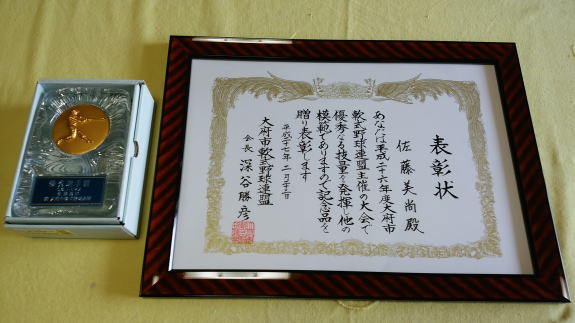 表彰状
佐藤美尚殿
あなたは平成二十六年度大府市
軟式野球連盟主催の大会で
優秀なる技量を発揮し他の
模範でありますので記念品を
贈り表彰します
平成二十七年二月二十二日
大府市軟式野球連盟
会長 深谷勝彦